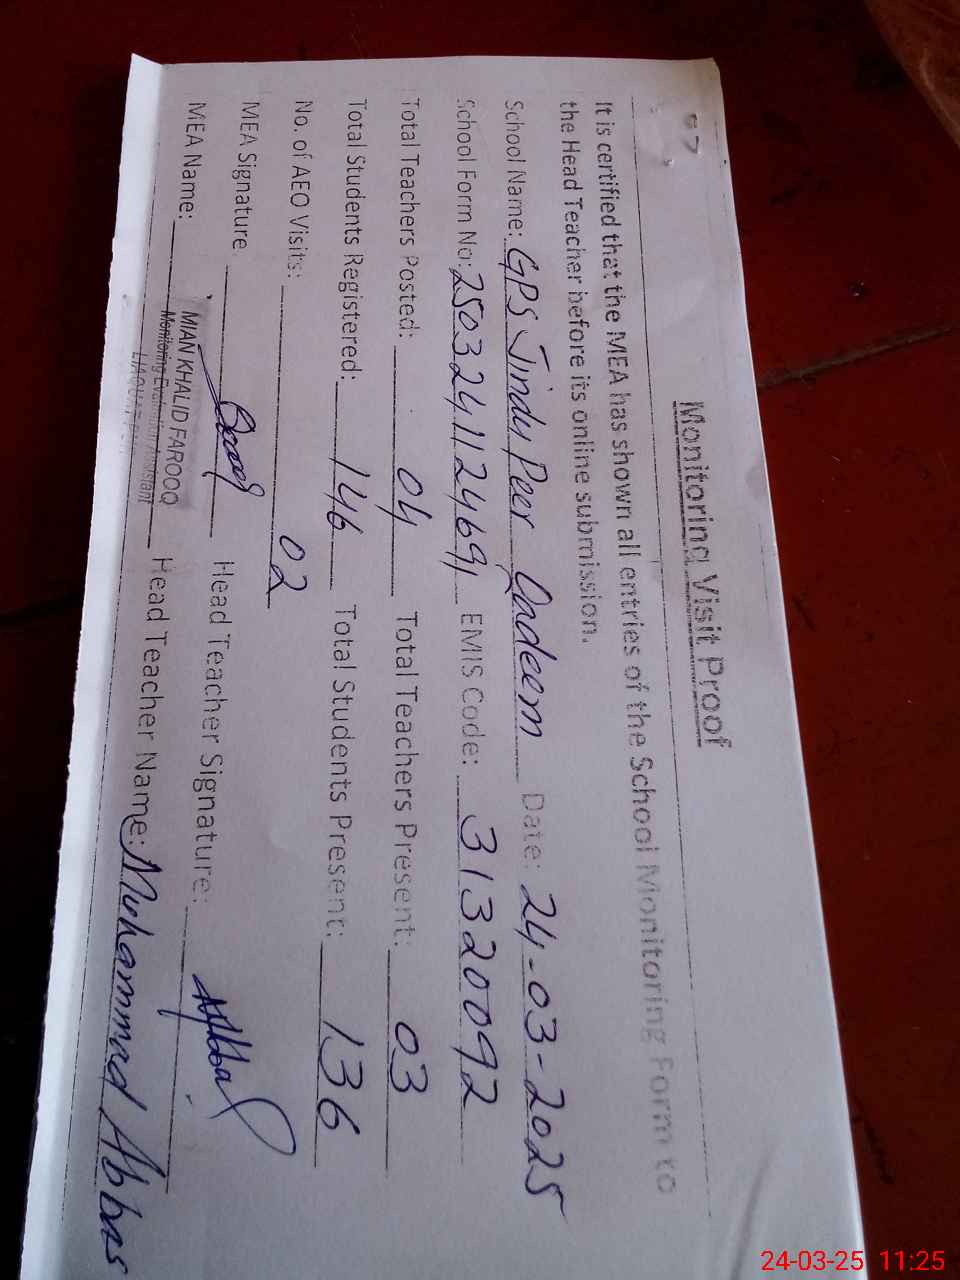 Monitoring Visit Proof
It is certified that the MEA has shown all entries of the School Monitoring Form to
the Head Teacher before its online submission.
School Name: GPS Jindu Peer Qadeem Date: 24-03-2025
School Form No: 2503241124691 EMIS Code: 31320092
Total Teachers Posted: 04 Total Teachers Present: 03
Total Students Registered: 146 Total Students Present: 136
No. of AEO Visits: 02
MEA Signature Head Teacher Signature:
MEA Name: MIAN KHALID FAROOQ Head Teacher Name: Muhammad Abbas
Monitoring Evaluation Assistant
24-03-25 11:25